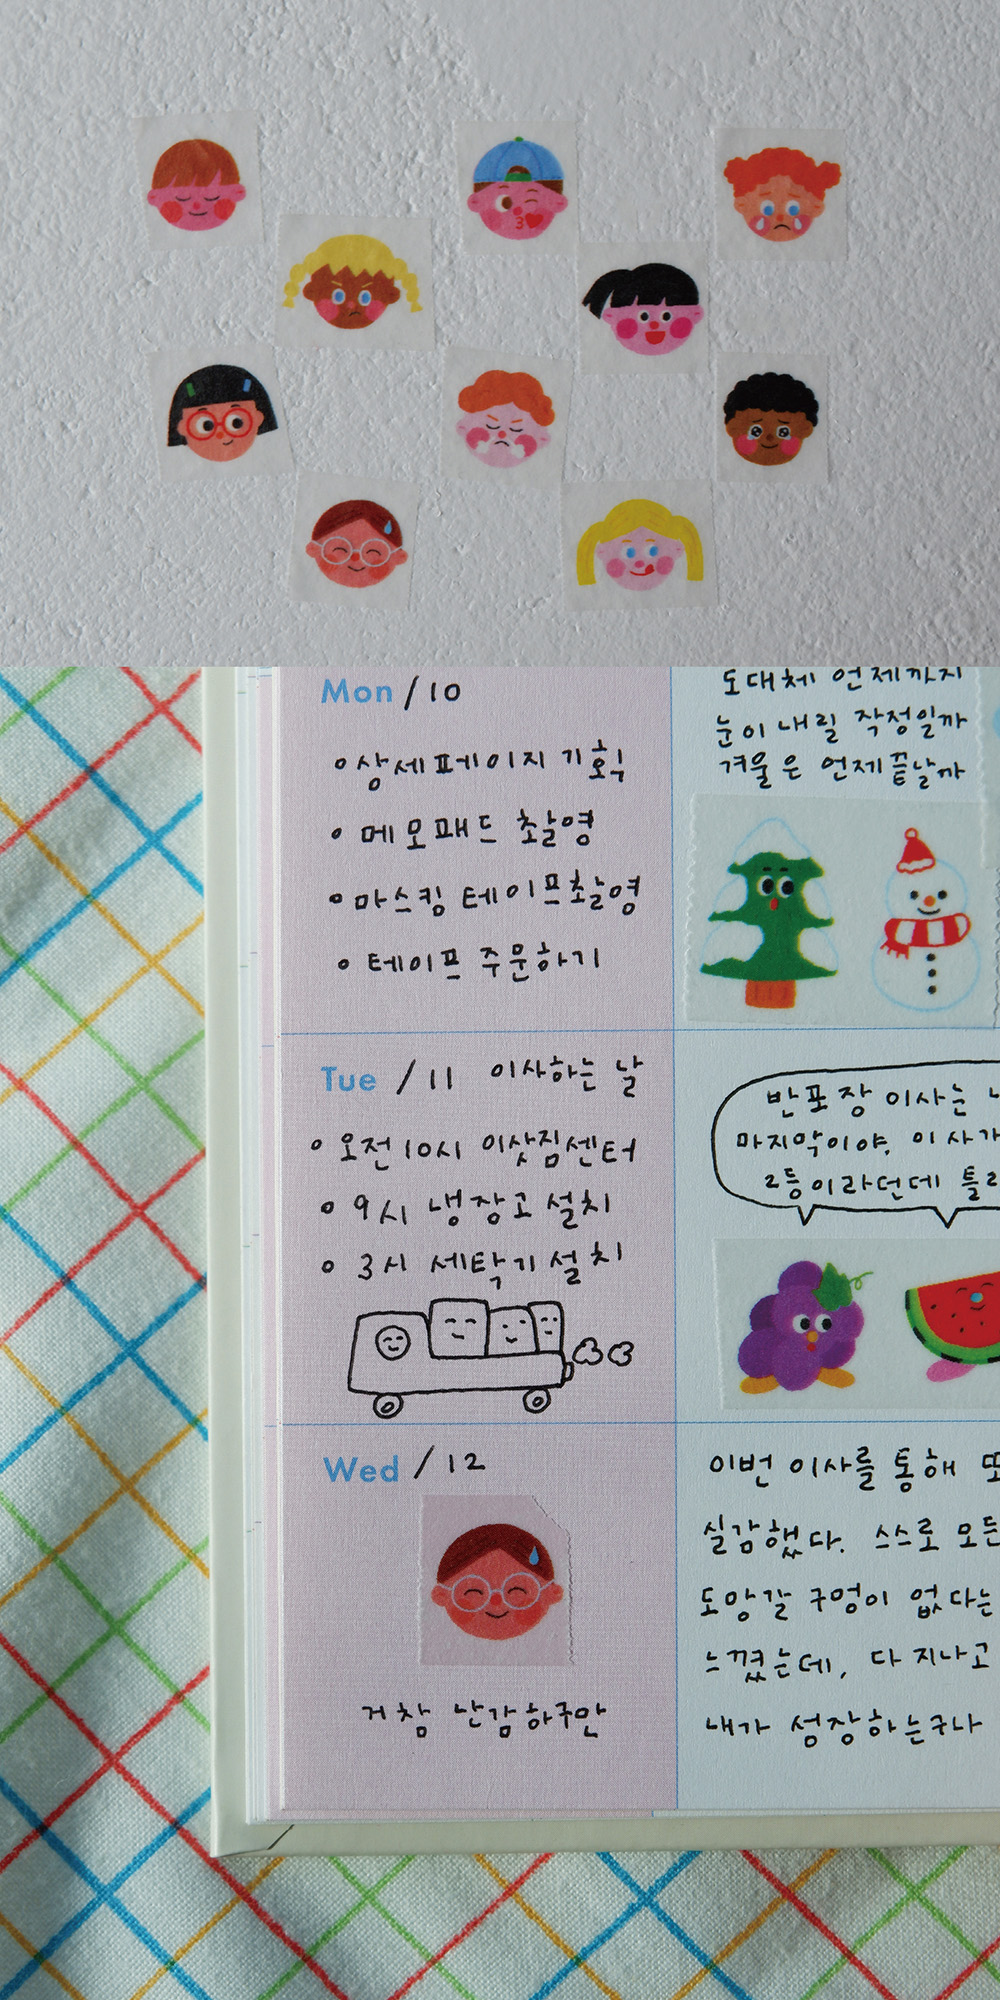 Mon / 10
• 상세페이지 기획
• 메모패드 촬영
• 마스킹 테이프 촬영
• 테이프 주문하기
도대체 언제까지
눈이 내릴 작정일까
겨울은 언제 끝날까
Tue / 11 이사하는 날
• 오전 10시 이삿짐센터
• 9시 냉장고 설치
• 3시 세탁기 설치
반포장 이사는
마지막이야. 이사가
2등이라던데
Wed / 12
거참 난감하구만
이번 이사를 통해 또
실감했다. 스스로 모든
도망갈 구멍이 없다는
느꼈는데, 다 지나고
내가 성장하는구나